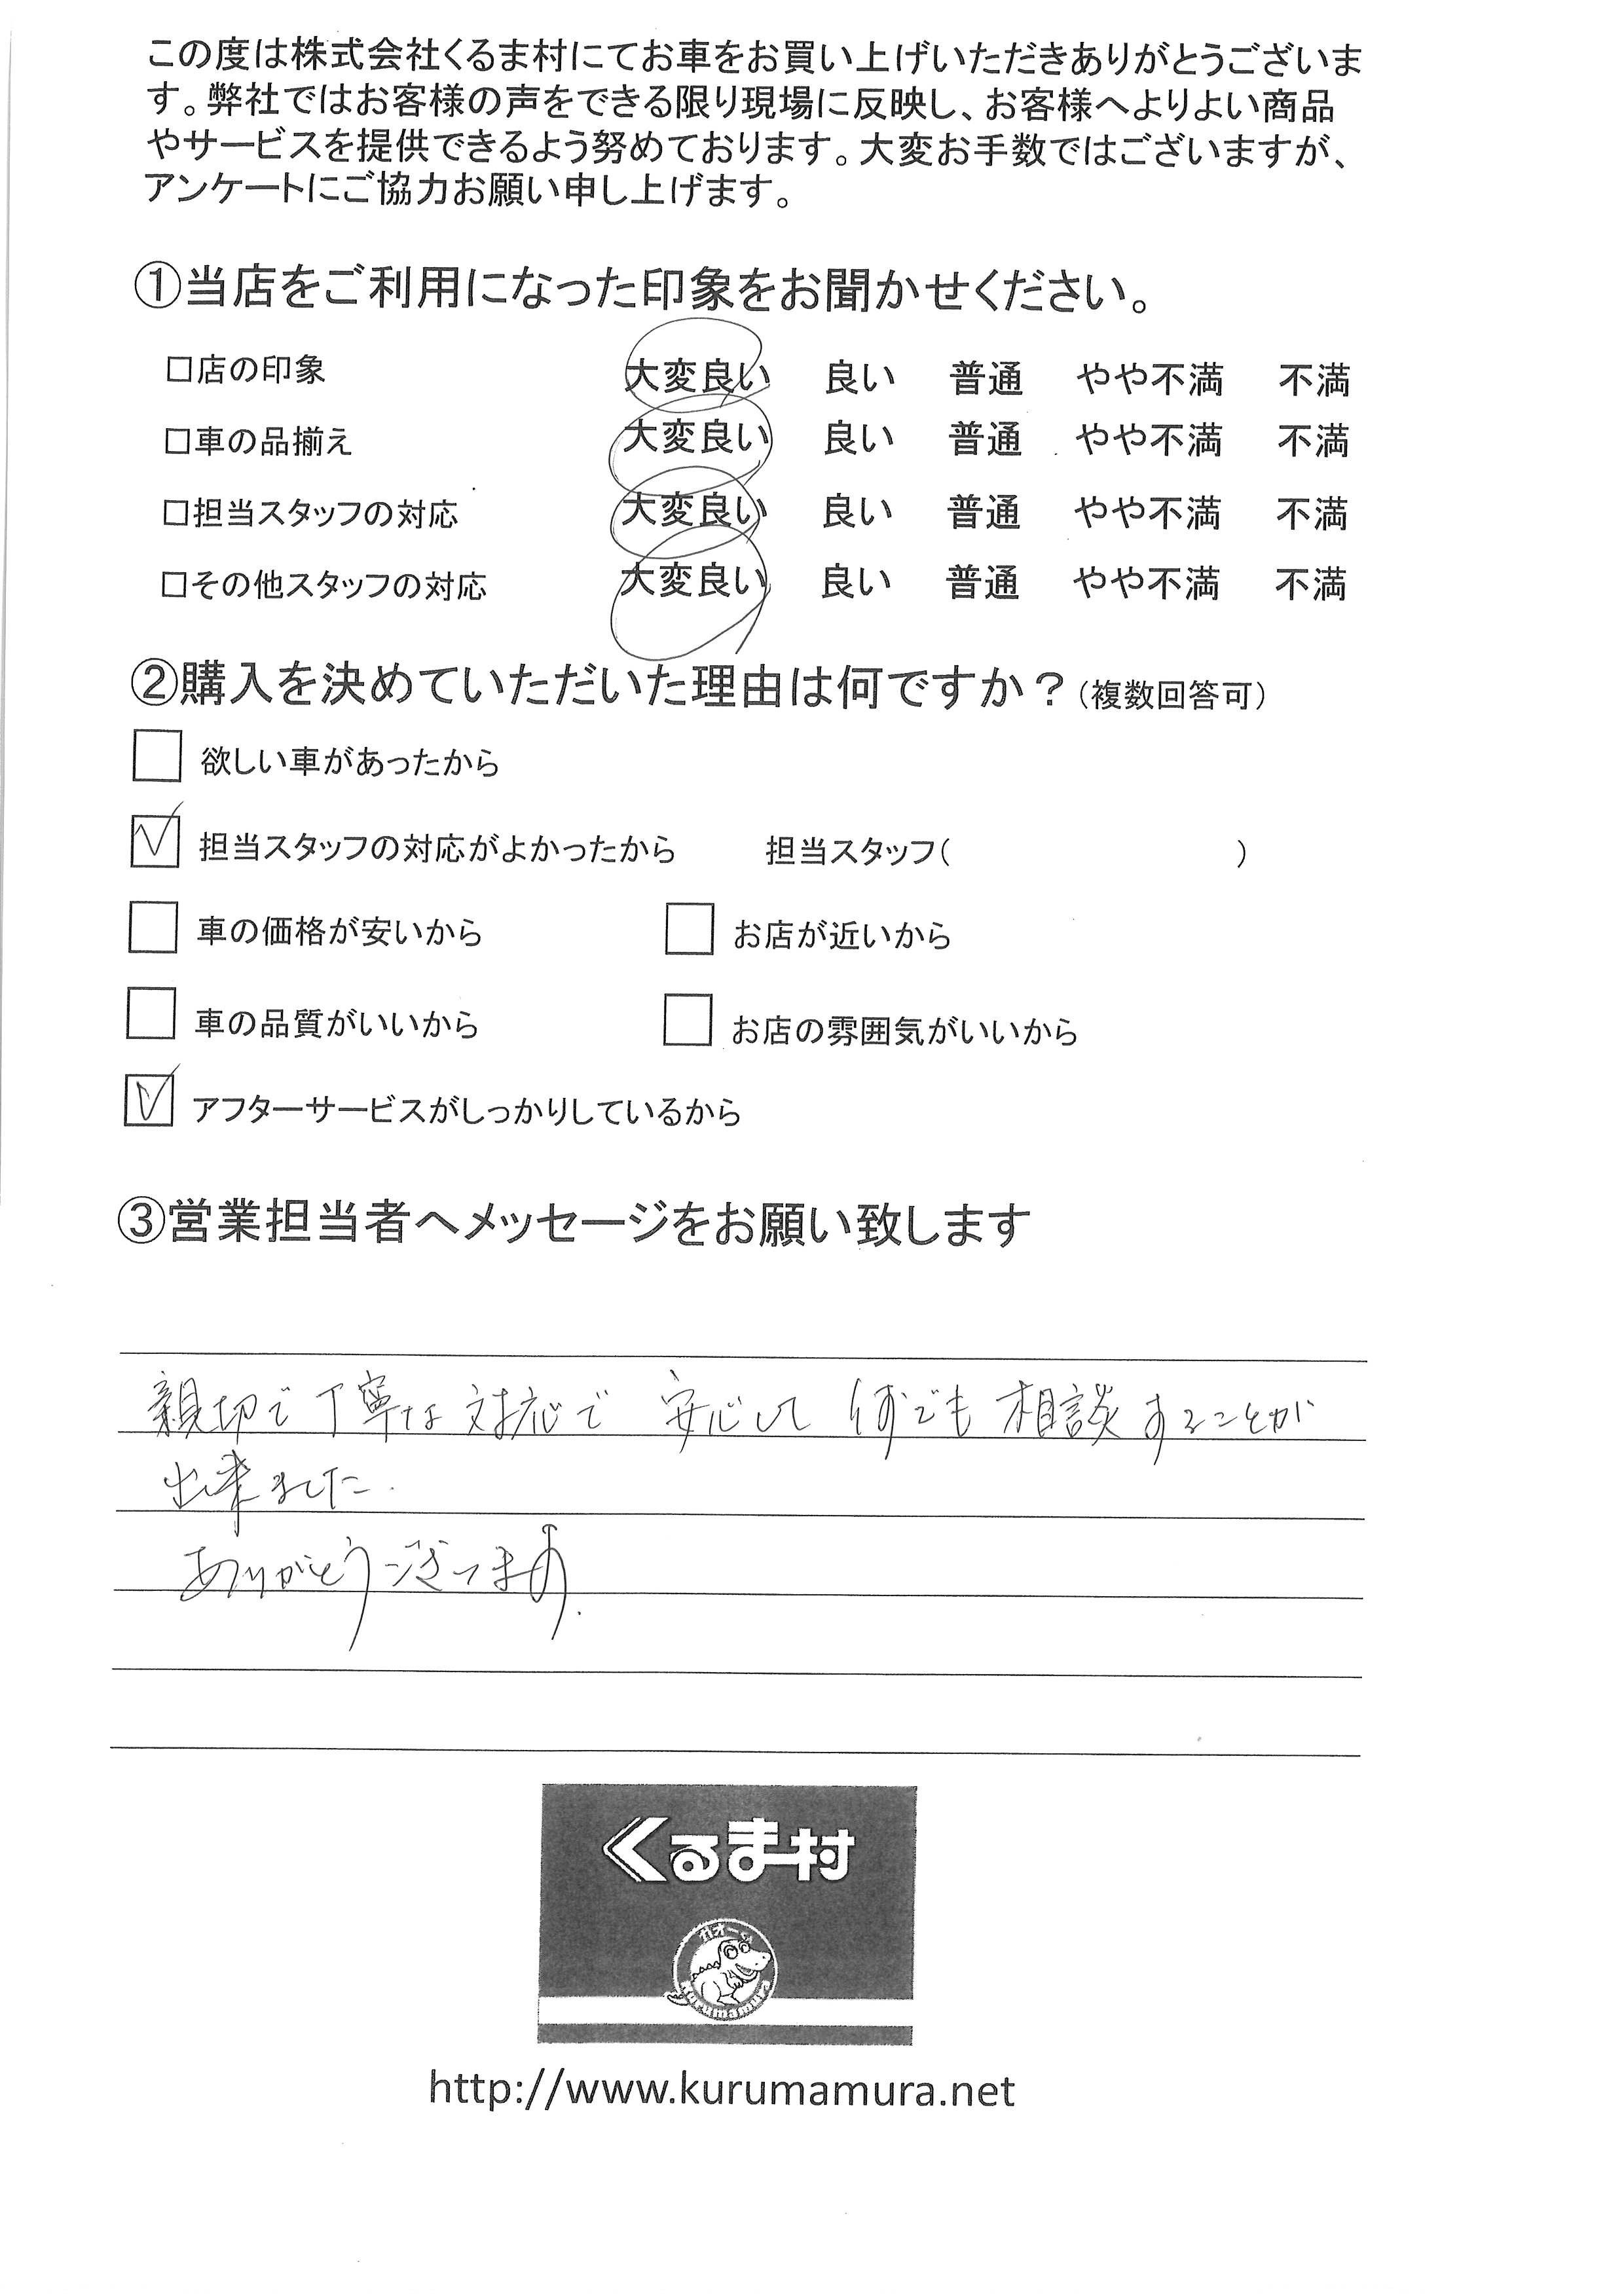 この度は株式会社くるま村にてお車をお買い上げいただきありがとうございま
す。弊社ではお客様の声をできる限り現場に反映し、お客様へよりよい商品
やサービスを提供できるよう努めております。大変お手数ではございますが、
アンケートにご協力お願い申し上げます。
①当店をご利用になった印象をお聞かせください。
□店の印象 大変良い 良い 普通 やや不満 不満
□車の品揃え 大変良い 良い 普通 やや不満 不満
□担当スタッフの対応 大変良い 良い 普通 やや不満 不満
□その他スタッフの対応 大変良い 良い 普通 やや不満 不満
②購入を決めていただいた理由は何ですか?(複数回答可)
欲しい車があったから
担当スタッフの対応がよかったから 担当スタッフ( )
車の価格が安いから お店が近いから
車の品質がいいから お店の雰囲気がいいから
アフターサービスがしっかりしているから
③営業担当者へメッセージをお願い致します
親切で丁寧な対応で 安心して 何でも相談することが
出来ました.
ありがとうございます.
くるま村
ガオーッ
kurumamura
http://www.kurumamura.net